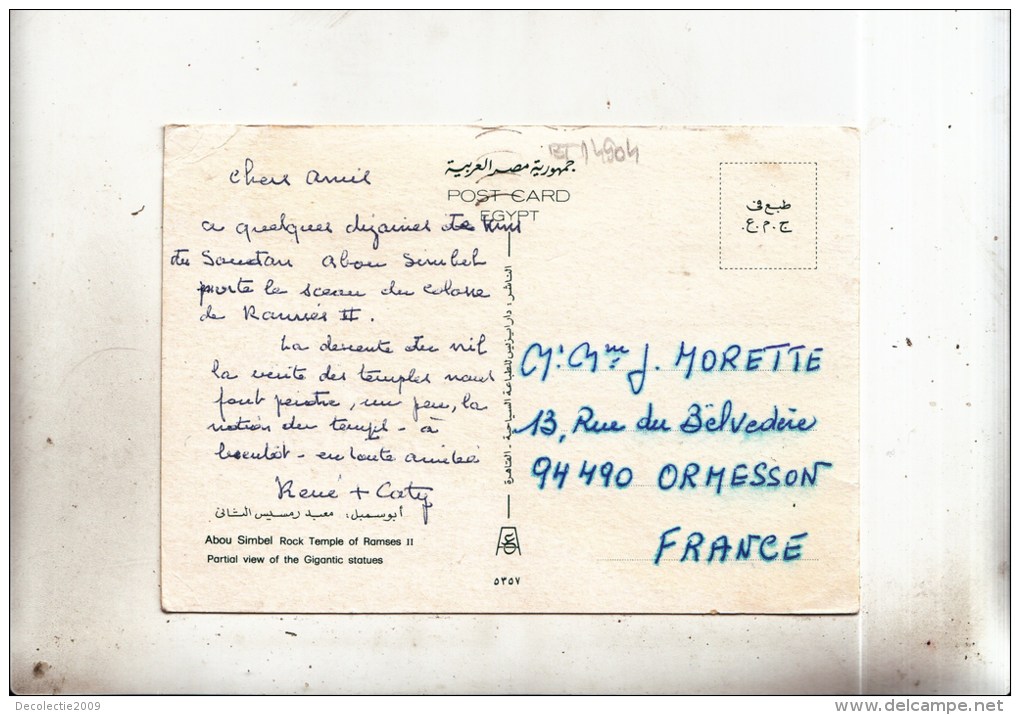 BT14904
جمهورية مصر العربية
POST CARD
EGYPT
طبع فى
ج.م.ع.
Chers amis
a quelques dizaines de Km
du Soudan Abou Simbel
porte le sceau du colosse
de Ramsès II.
La descente du nil
la visite des temples nous
font perdre, un peu, la
notion du temps - à
bientôt - en toute amitié
René + Caty
أبوسمبل: معبد رمسيس الثانى
Abou Simbel Rock Temple of Ramses II
Partial view of the Gigantic statues
الناشر: دار ايزيس للطباعة السياحية - القاهرة
٥٣٥٧
Mr. Mme J. MORETTE
13, Rue du Bëlvedère
94490 ORMESSON
FRANCE
Decolectie2009
delcampe.net